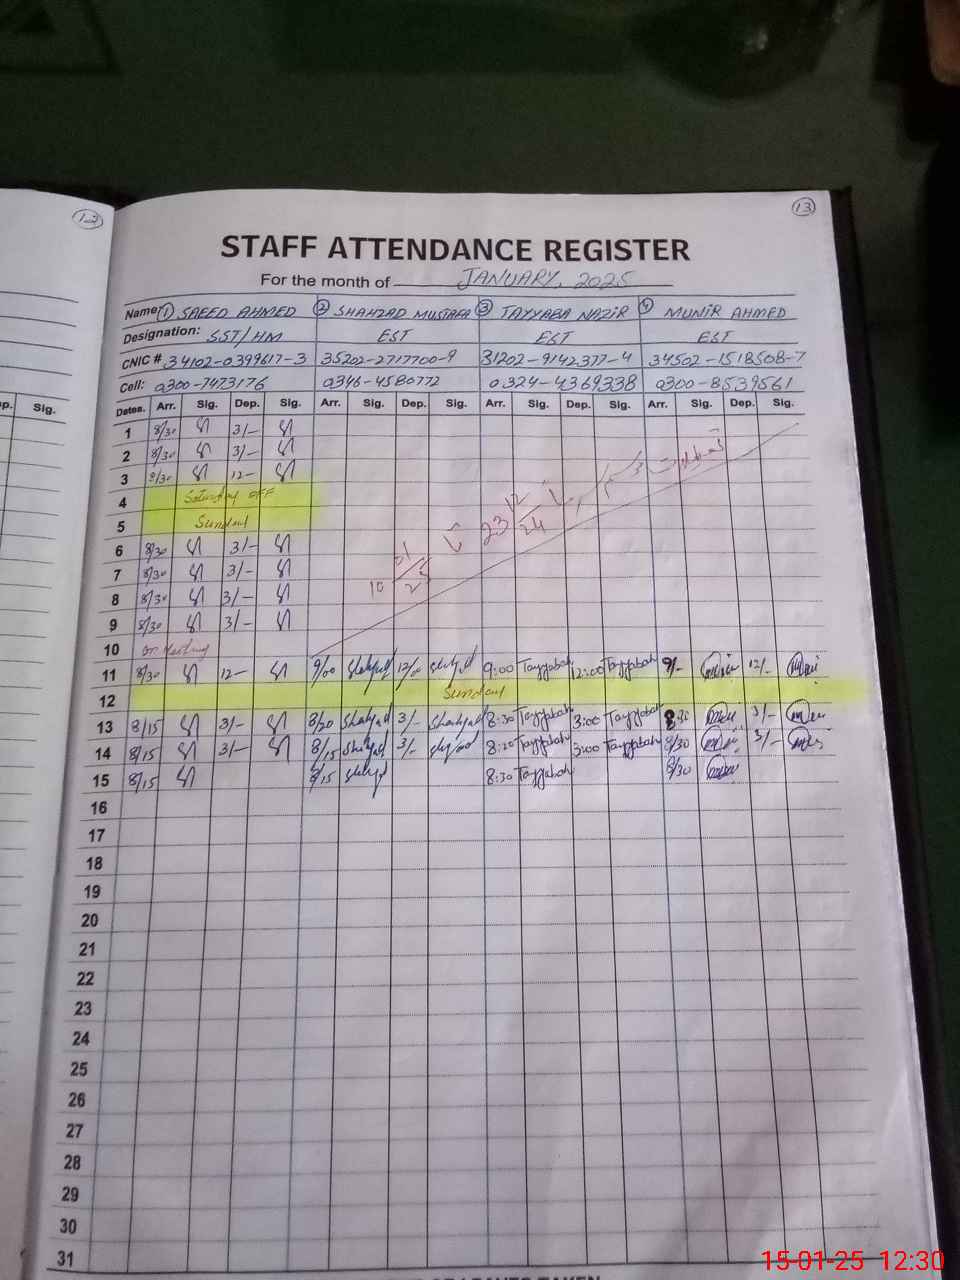 12
13
STAFF ATTENDANCE REGISTER
For the month of JANUARY, 2025
Name: ① SAEED AHMED ② SHAHZAD MUSTAFA ③ TAYYABA NAZIR ④ MUNIR AHMED
Designation: SST/HM EST EST EST
CNIC # 34102-0399617-3 35202-2717700-9 31202-9142377-4 34502-1518508-7
Cell: 0300-7473176 0346-4580772 0324-4369338 0300-8539561
p. Sig. Dates. Arr. Sig. Dep. Sig. Arr. Sig. Dep. Sig. Arr. Sig. Dep. Sig. Arr. Sig. Dep. Sig.
1 8/30 3/-
2 8/30 3/-
3 8/30 12-
4 Saturday OFF
5 Sunday
6 8/30 3/-
7 8/30 3/-
8 8/30 3/-
9 8/30 3/-
تعطیلات موسم سرما 23 12/24 تا 10 01/25
10 on meeting
11 8/30 12- 9/00 Shahzad 12/0 Shahzad 9:00 Tayyabah 12:00 Tayyabah 9/- 12/-
12 Sunday
13 8/15 3/- 8/20 Shahzad 3/- Shahzad 8:30 Tayyabah 3:00 Tayyabah 8/30 3/-
14 8/15 3/- 8/15 Shahzad 3/- Shahzad 8:20 Tayyabah 3:00 Tayyabah 8/30 3/-
15 8/15 8/15 Shahzad 8:30 Tayyabah 8/30
16
17
18
19
20
21
22
23
24
25
26
27
28
29
30
31
15-01-25 12:30